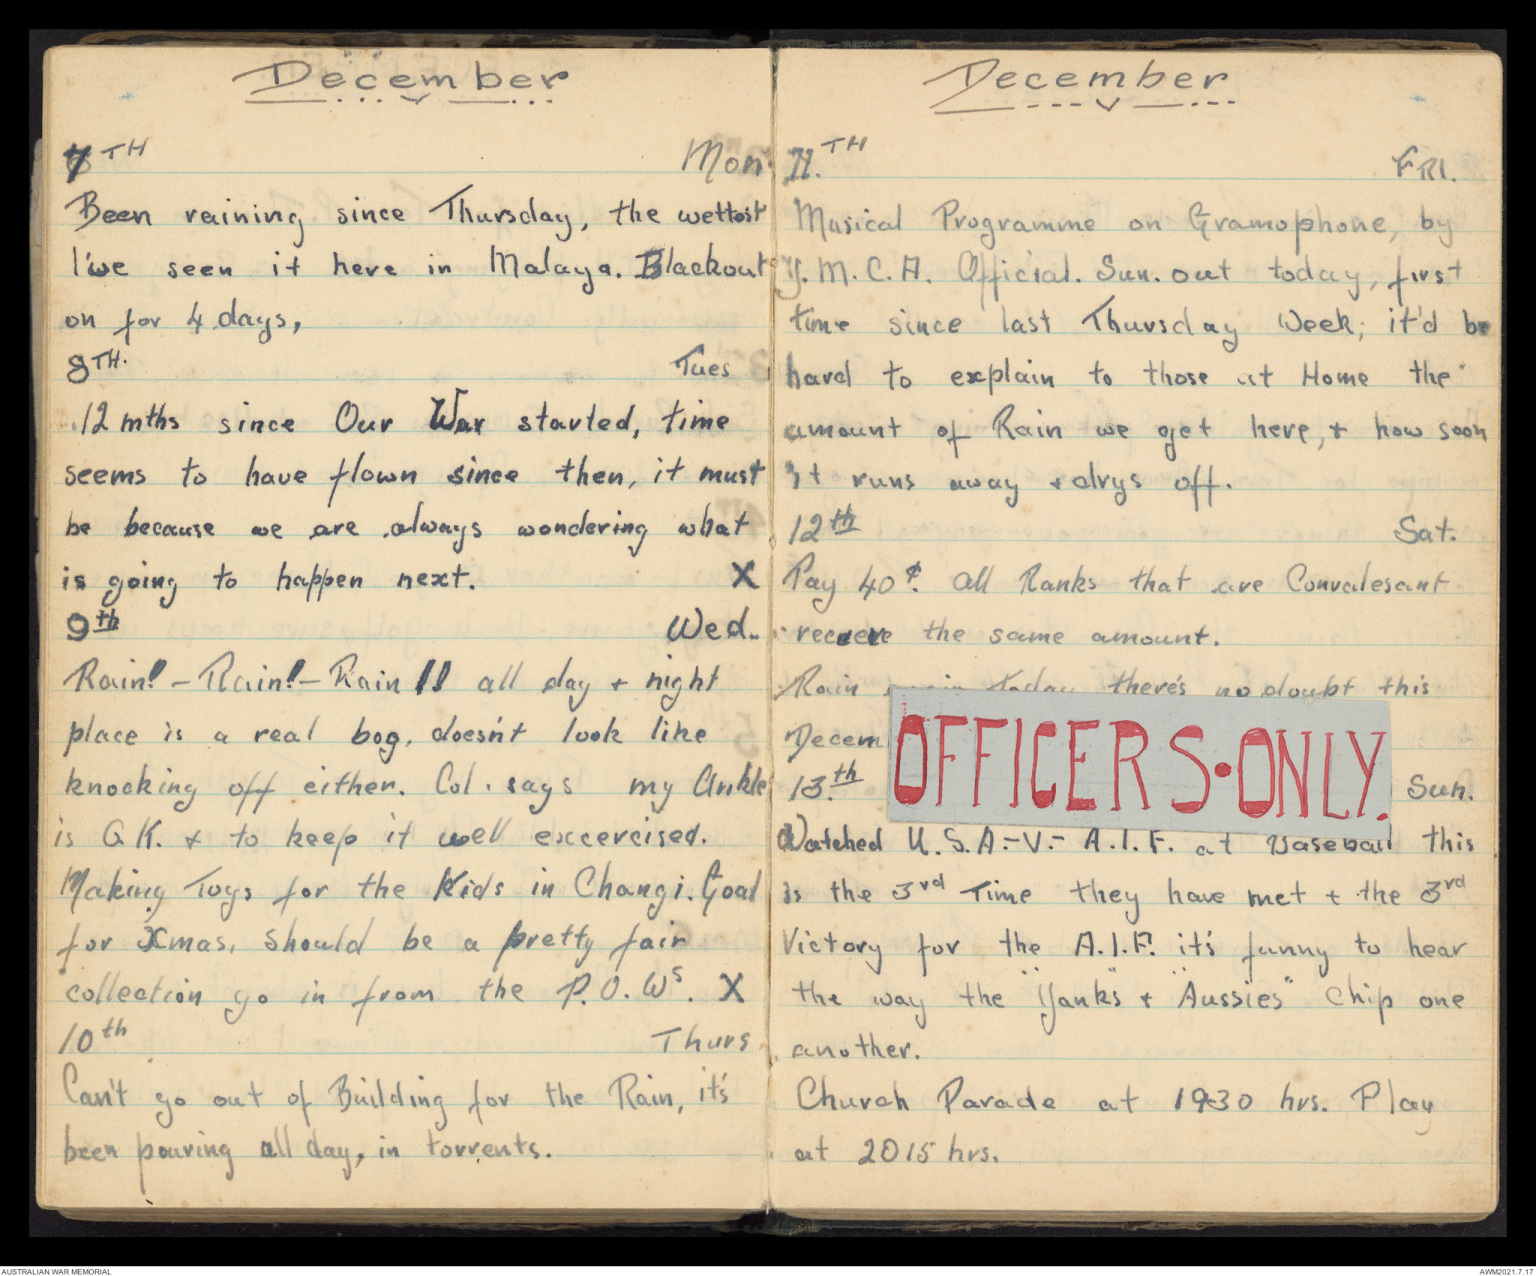 December
7TH Mon
Been raining since Thursday, the wettest
I've seen it here in Malaya. Blackout
on for 4 days,
8TH. Tues
12 mths since Our War started, time
seems to have flown since then, it must
be because we are always wondering what
is going to happen next. X
9th Wed.
Rain! – Rain! – Rain !! all day + night
place is a real bog, doesn't look like
knocking off either. Col. says my Ankle
is O.K. + to keep it well excercised.
Making Toys for the Kids in Changi. Goal
for Xmas, should be a pretty fair
collection go in from the P.O.Ws. X
10th Thurs
Can't go out of Building for the Rain, it's
been pouring all day, in torrents.
December
11.TH FRI.
Musical Programme on Gramophone, by
Y.M.C.A. Official. Sun. out today, first
time since last Thursday Week; it'd be
hard to explain to those at Home the
amount of Rain we get here, + how soon
it runs away + drys off.
12th Sat.
Pay 40¢. all Ranks that are Convalesant
recieve the same amount.
Rain again today there's no doubt this
Decem
OFFICERS·ONLY.
13.th Sun.
Watched U.S.A.-V.- A.I.F. at Baseball this
is the 3rd Time they have met + the 3rd
Victory for the A.I.F. it's funny to hear
the way the "Yanks" + "Aussies" Chip one
another.
Church Parade at 1930 hrs. Play
at 2015 hrs.
AUSTRALIAN WAR MEMORIAL
AWM2021.7.17